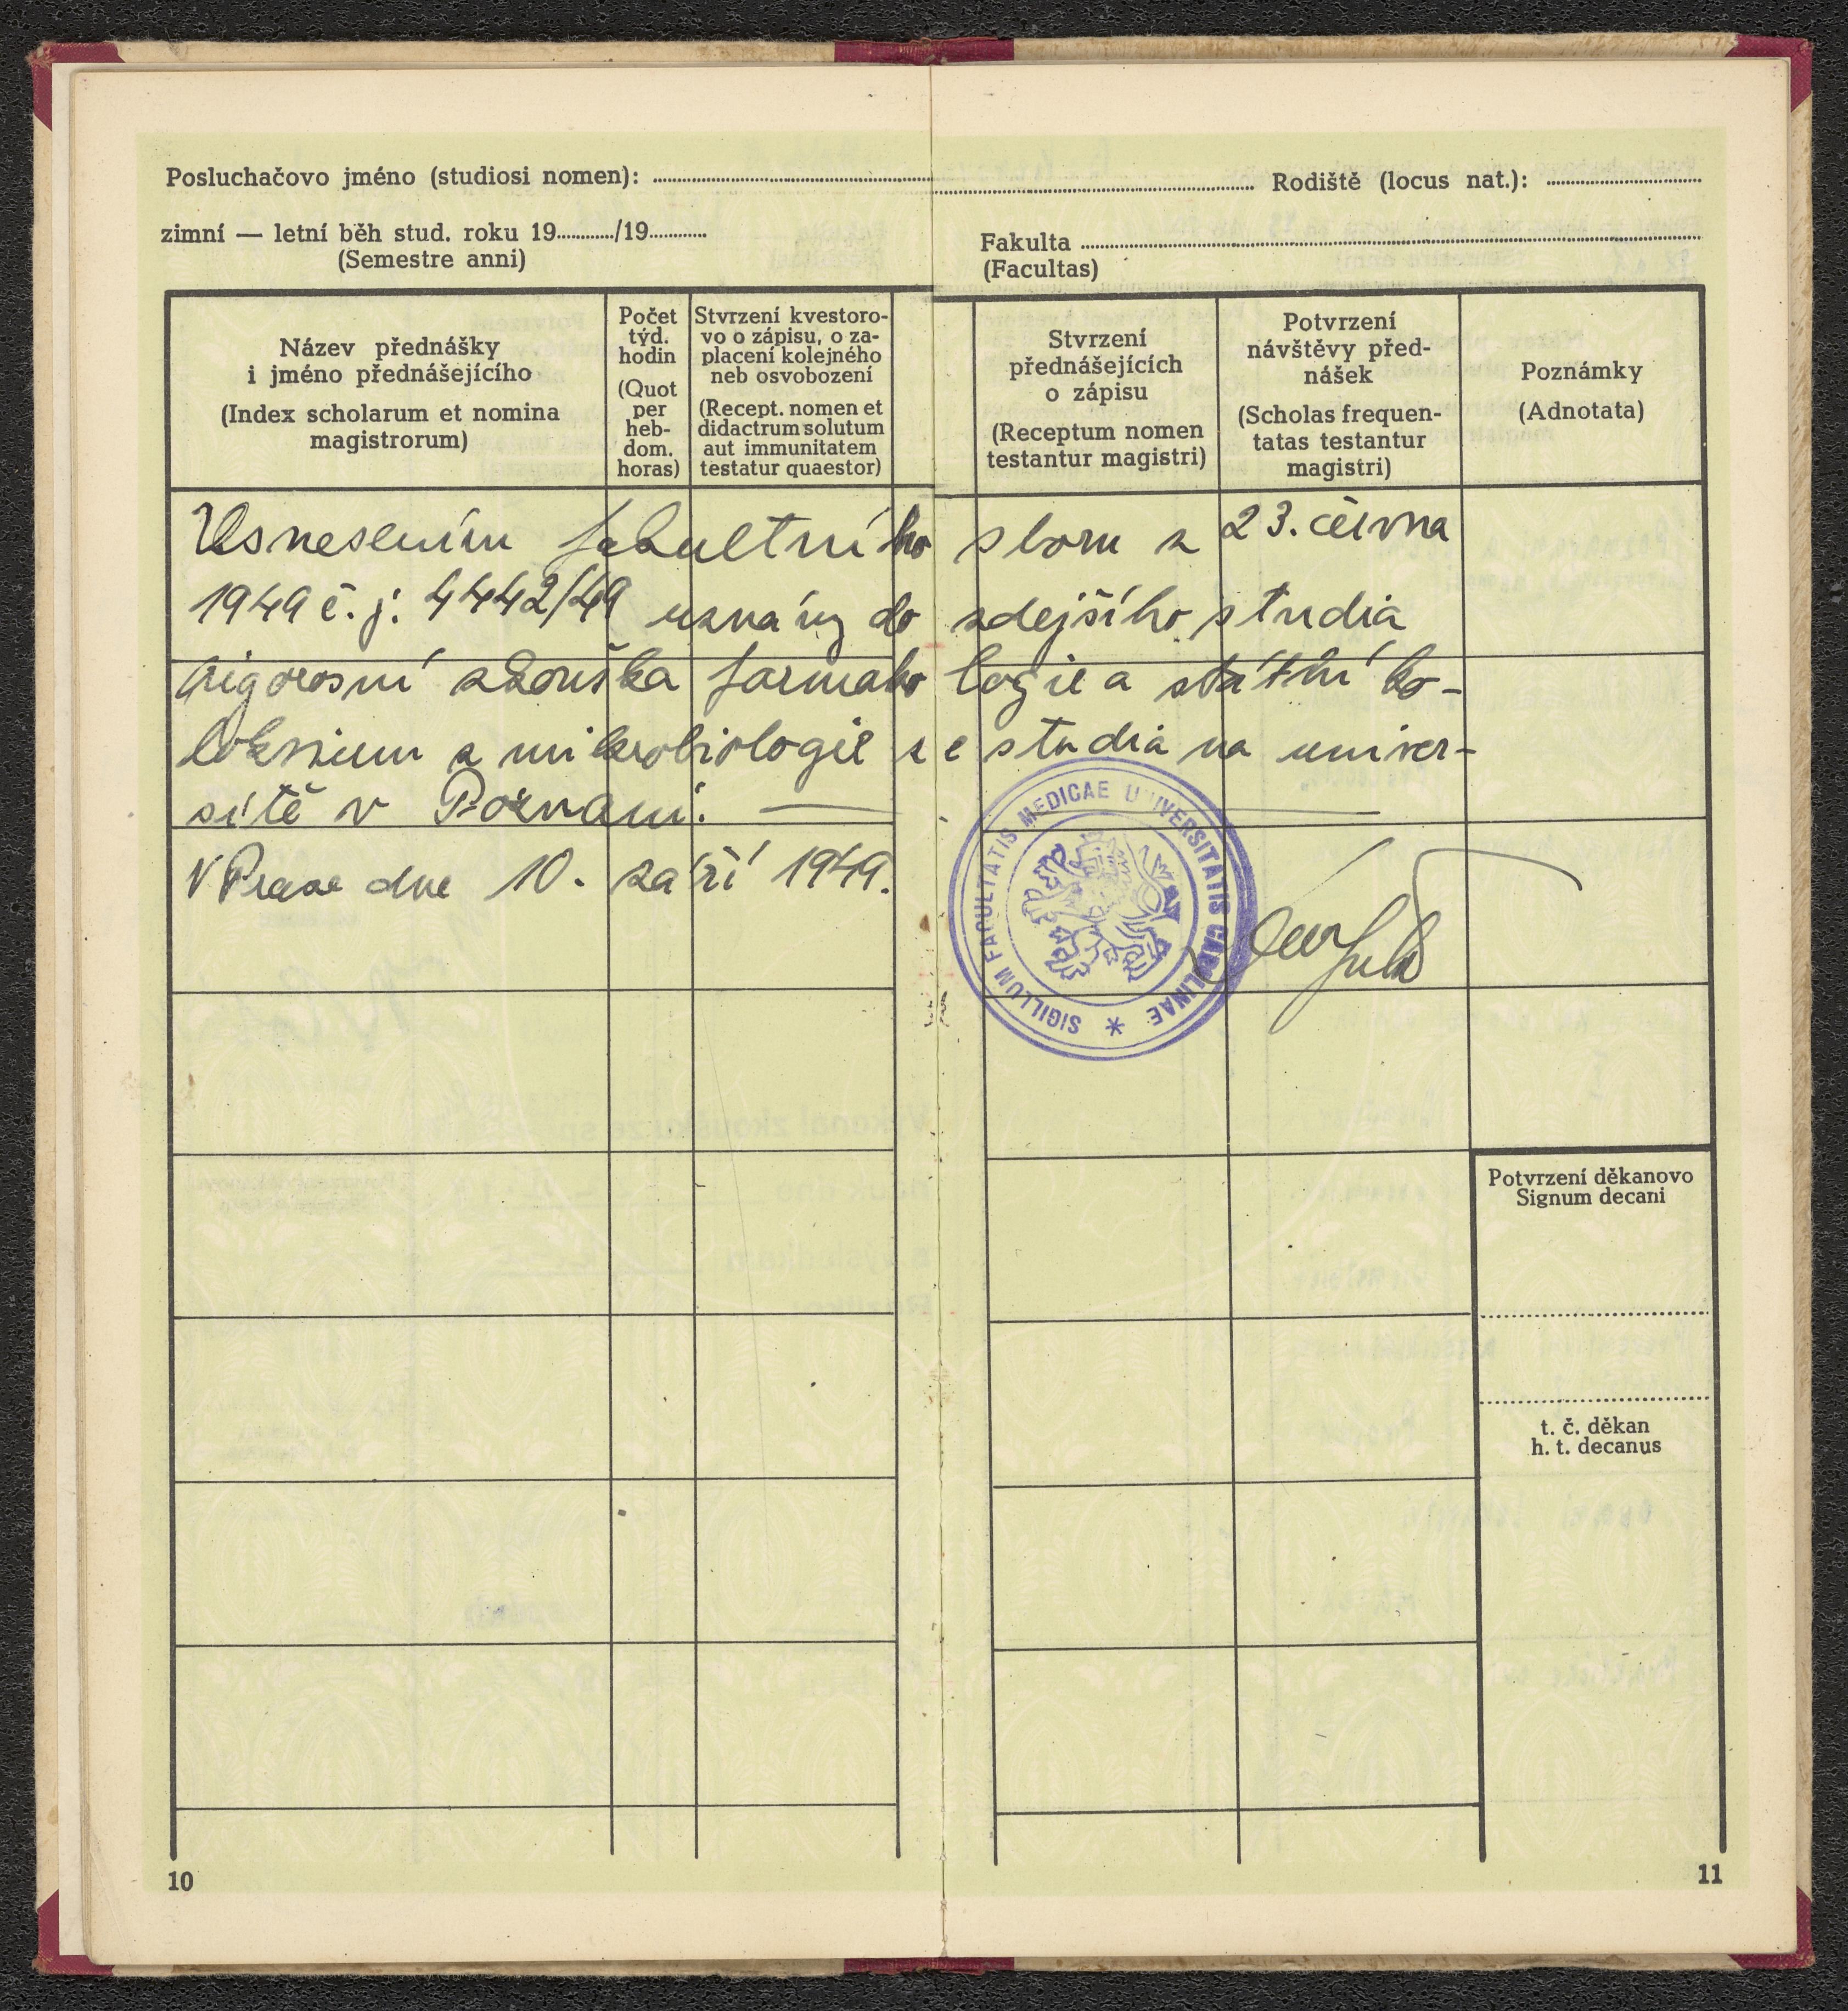 Posluchačovo jméno (studiosi nomen): Rodiště (locus nat.):
zimní — letní běh stud. roku 19 /19
(Semestre anni)
Fakulta
(Facultas)
Název přednášky
i jméno přednášejícího
(Index scholarum et nomina
magistrorum)
Počet
týd.
hodin
(Quot
per
heb-
dom.
horas)
Stvrzení kvestoro-
vo o zápisu, o za-
placení kolejného
neb osvobození
(Recept. nomen et
didactrum solutum
aut immunitatem
testatur quaestor)
Stvrzení
přednášejících
o zápisu
(Receptum nomen
testantur magistri)
Potvrzení
návštěvy před-
nášek
(Scholas frequen-
tatas testantur
magistri)
Poznámky
(Adnotata)
Usnesením fakultního sboru z 23. června
1949 č. j. 4442/49 uznány do zdejšího studia
rigorosní zkouška farmakologie a státní ko-
lokvium z mikrobiologie ze studia na univer-
sitě v Poznani. —
V Praze dne 10. září 1949.
SIGILLUM FACULTATIS MEDICAE UNIVERSITATIS CAROLINAE *
Potvrzení děkanovo
Signum decani
t. č. děkan
h. t. decanus
10
11